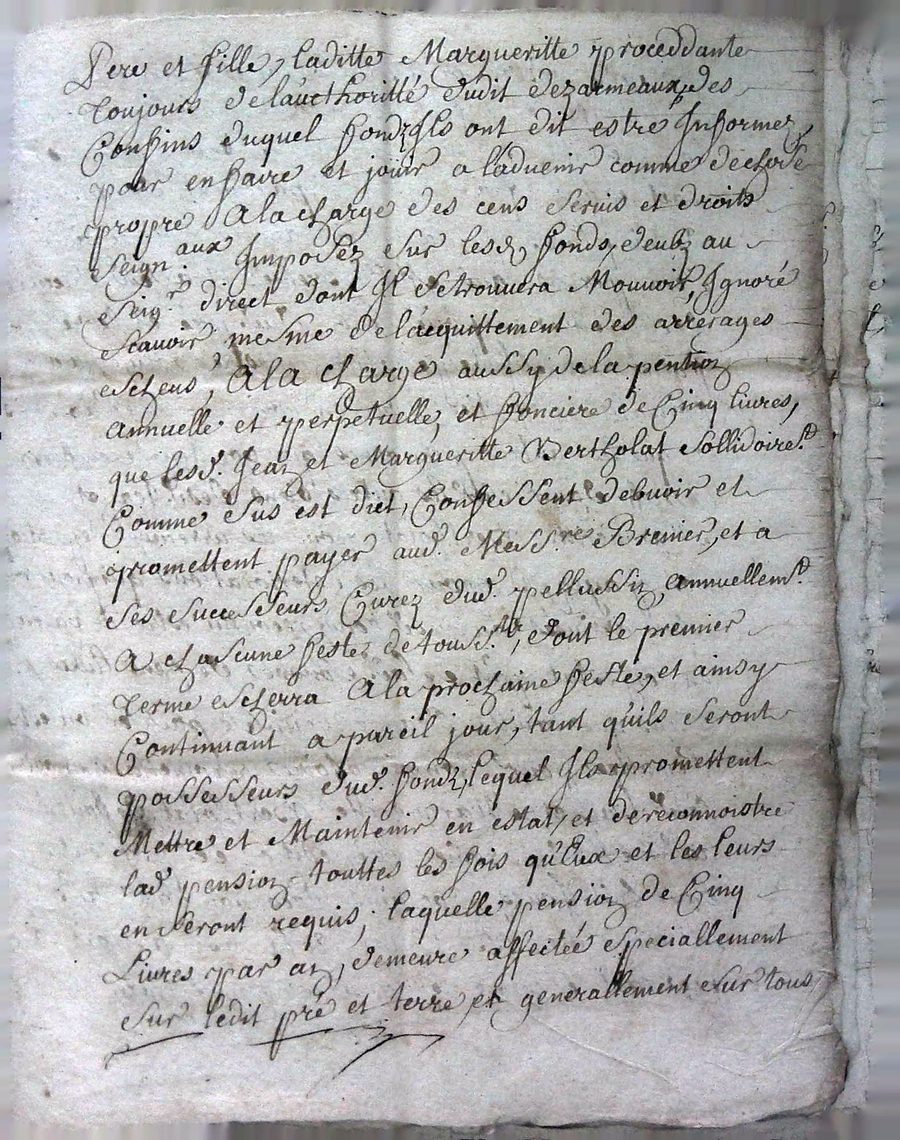 Pere et fille, laditte Margueritte proceddante
toujours de l'aucthoritté dudit dezarmeaux, des
Confins duquel fondz Ils ont dit estre Informez,
pour en faire et jouir a l'aduenir comme de chose
propre A la charge des cens servis et droits
Seign.aux Imposez sur lesd. fonds, deubz au
Seigr. direct dont Il se trouvera Mouvoir, Ignoré
scavoir mesme de l'acquittement des arrerages
escheus, A la charge aussy de la pention
annuelle et perpetuelle, et fonciere de Cinq livres,
que lesd. Jean et Margueritte Bertholat sollidairemt.
Comme sus est dict, Confessent debuoir et
promettent payer aud. Messre. Brenier, et a
ses successeurs Curez dud. pellussin, annuellemt.
A chascune feste de touss.ts, dont le premier
terme escherra A la prochaine feste, et ainsy
Continuant a pareil jour, tant qu'ils seront
possesseurs dud. fondz, lequel Ils promettent
Mettre et Maintenir en estat, et de reconnoistre
lad. pension touttes les fois qu'Eux et les leurs
en seront requis, laquelle pension de Cinq
Livres par an, demeure affectée speciallement
sur ledit pré et terre, et generallement sur tous